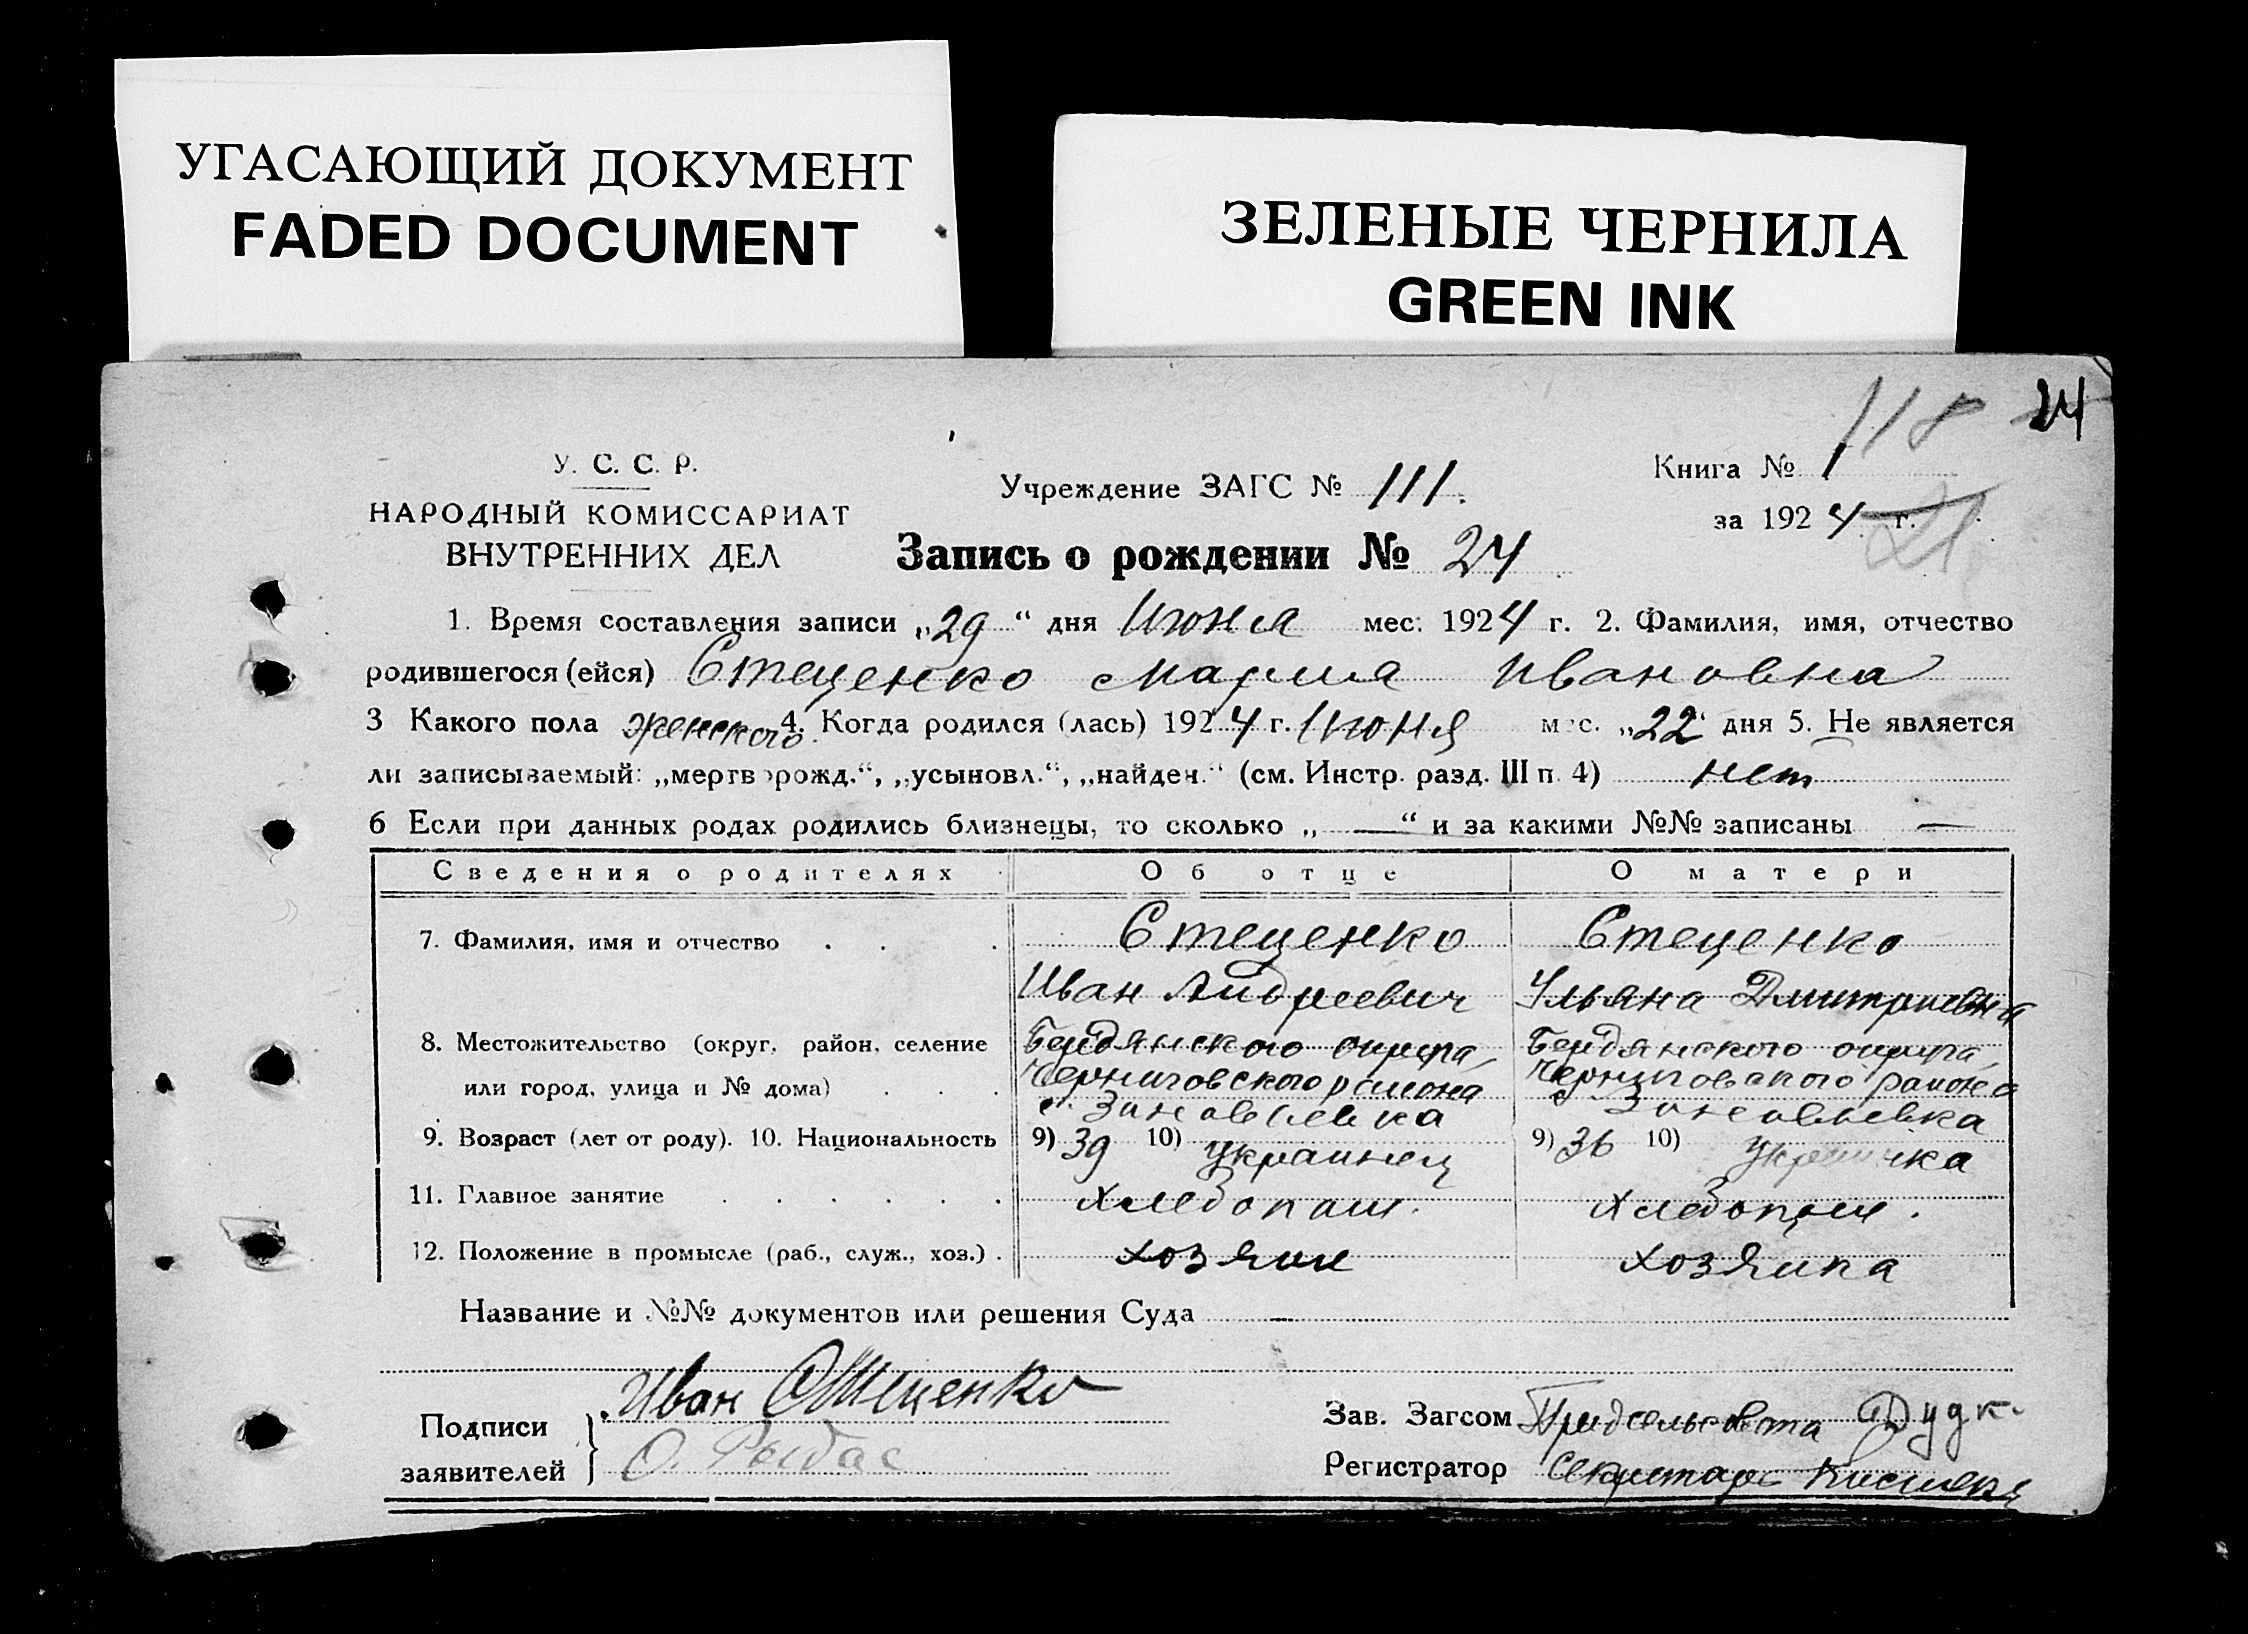 УГАСАЮЩИЙ ДОКУМЕНТ
FADED DOCUMENT
ЗЕЛЕНЫЕ ЧЕРНИЛА
GREEN INK
118 24
У. С. С. Р.
НАРОДНЫЙ КОМИССАРИАТ
ВНУТРЕННИХ ДЕЛ
Учреждение ЗАГС № 111.
Книга № 1
за 1924 г.
21
Запись о рождении № 24
1. Время составления записи „29“ дня Июня мес. 1924 г. 2. Фамилия, имя, отчество
родившегося (ейся) Стеценко Мария Ивановна
3 Какого пола женского 4. Когда родился (лась) 1924 г. Июня мес. „22“ дня 5. Не является
ли записываемый: „мертворожд.“, „усыновл.“, „найден.“ (см. Инстр. разд. III п. 4) нет
6 Если при данных родах родились близнецы, то сколько „—“ и за какими №№ записаны —
Сведения о родителях Об отце О матери
7. Фамилия, имя и отчество . . . Стеценко Стеценко
Иван Андреевич Ульяна Дмитриевна
8. Местожительство (округ, район, селение Бердянского округа, Бердянского округа,
или город, улица и № дома) . . . Черниговского района Черниговского района
с. Зиновьевка Зиновьевка
9. Возраст (лет от роду). 10. Национальность 9) 39 10) украинец 9) 36 10) украинка
11. Главное занятие . . . . . . хлебопаш. хлебопаш.
12. Положение в промысле (раб., служ., хоз.) . хозяин хозяика
Название и №№ документов или решения Суда —
Подписи заявителей } Иван Стеценко
О. Рыбас
Зав. Загсом Предсельсовета Дудк.
Регистратор Секретарь